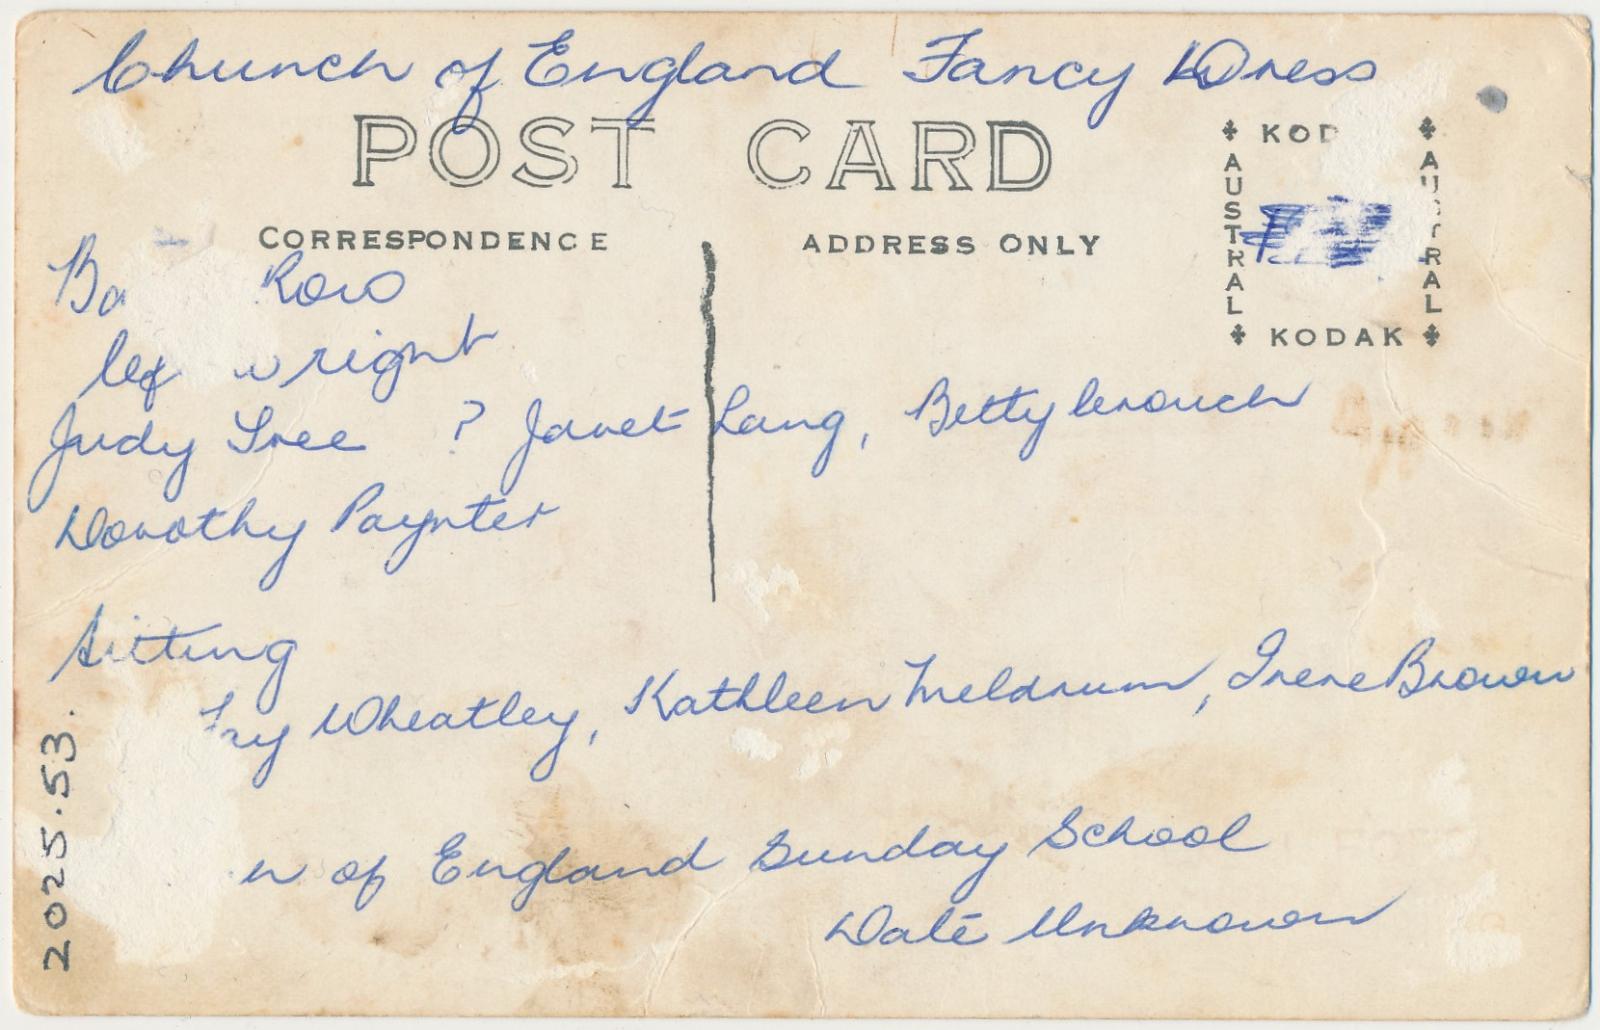 Church of England Fancy Dress
POST CARD
CORRESPONDENCE
ADDRESS ONLY
KOD
AUSTRAL
AUSTRAL
KODAK
Ba Row
lef right
Judy Tree ? Janet Lang, Betty Crouch
Dorothy Paynter
Sitting
Wheatley, Kathleen Meldrum, Irene Brown
of England Sunday School
Date Unknown
2025.53.